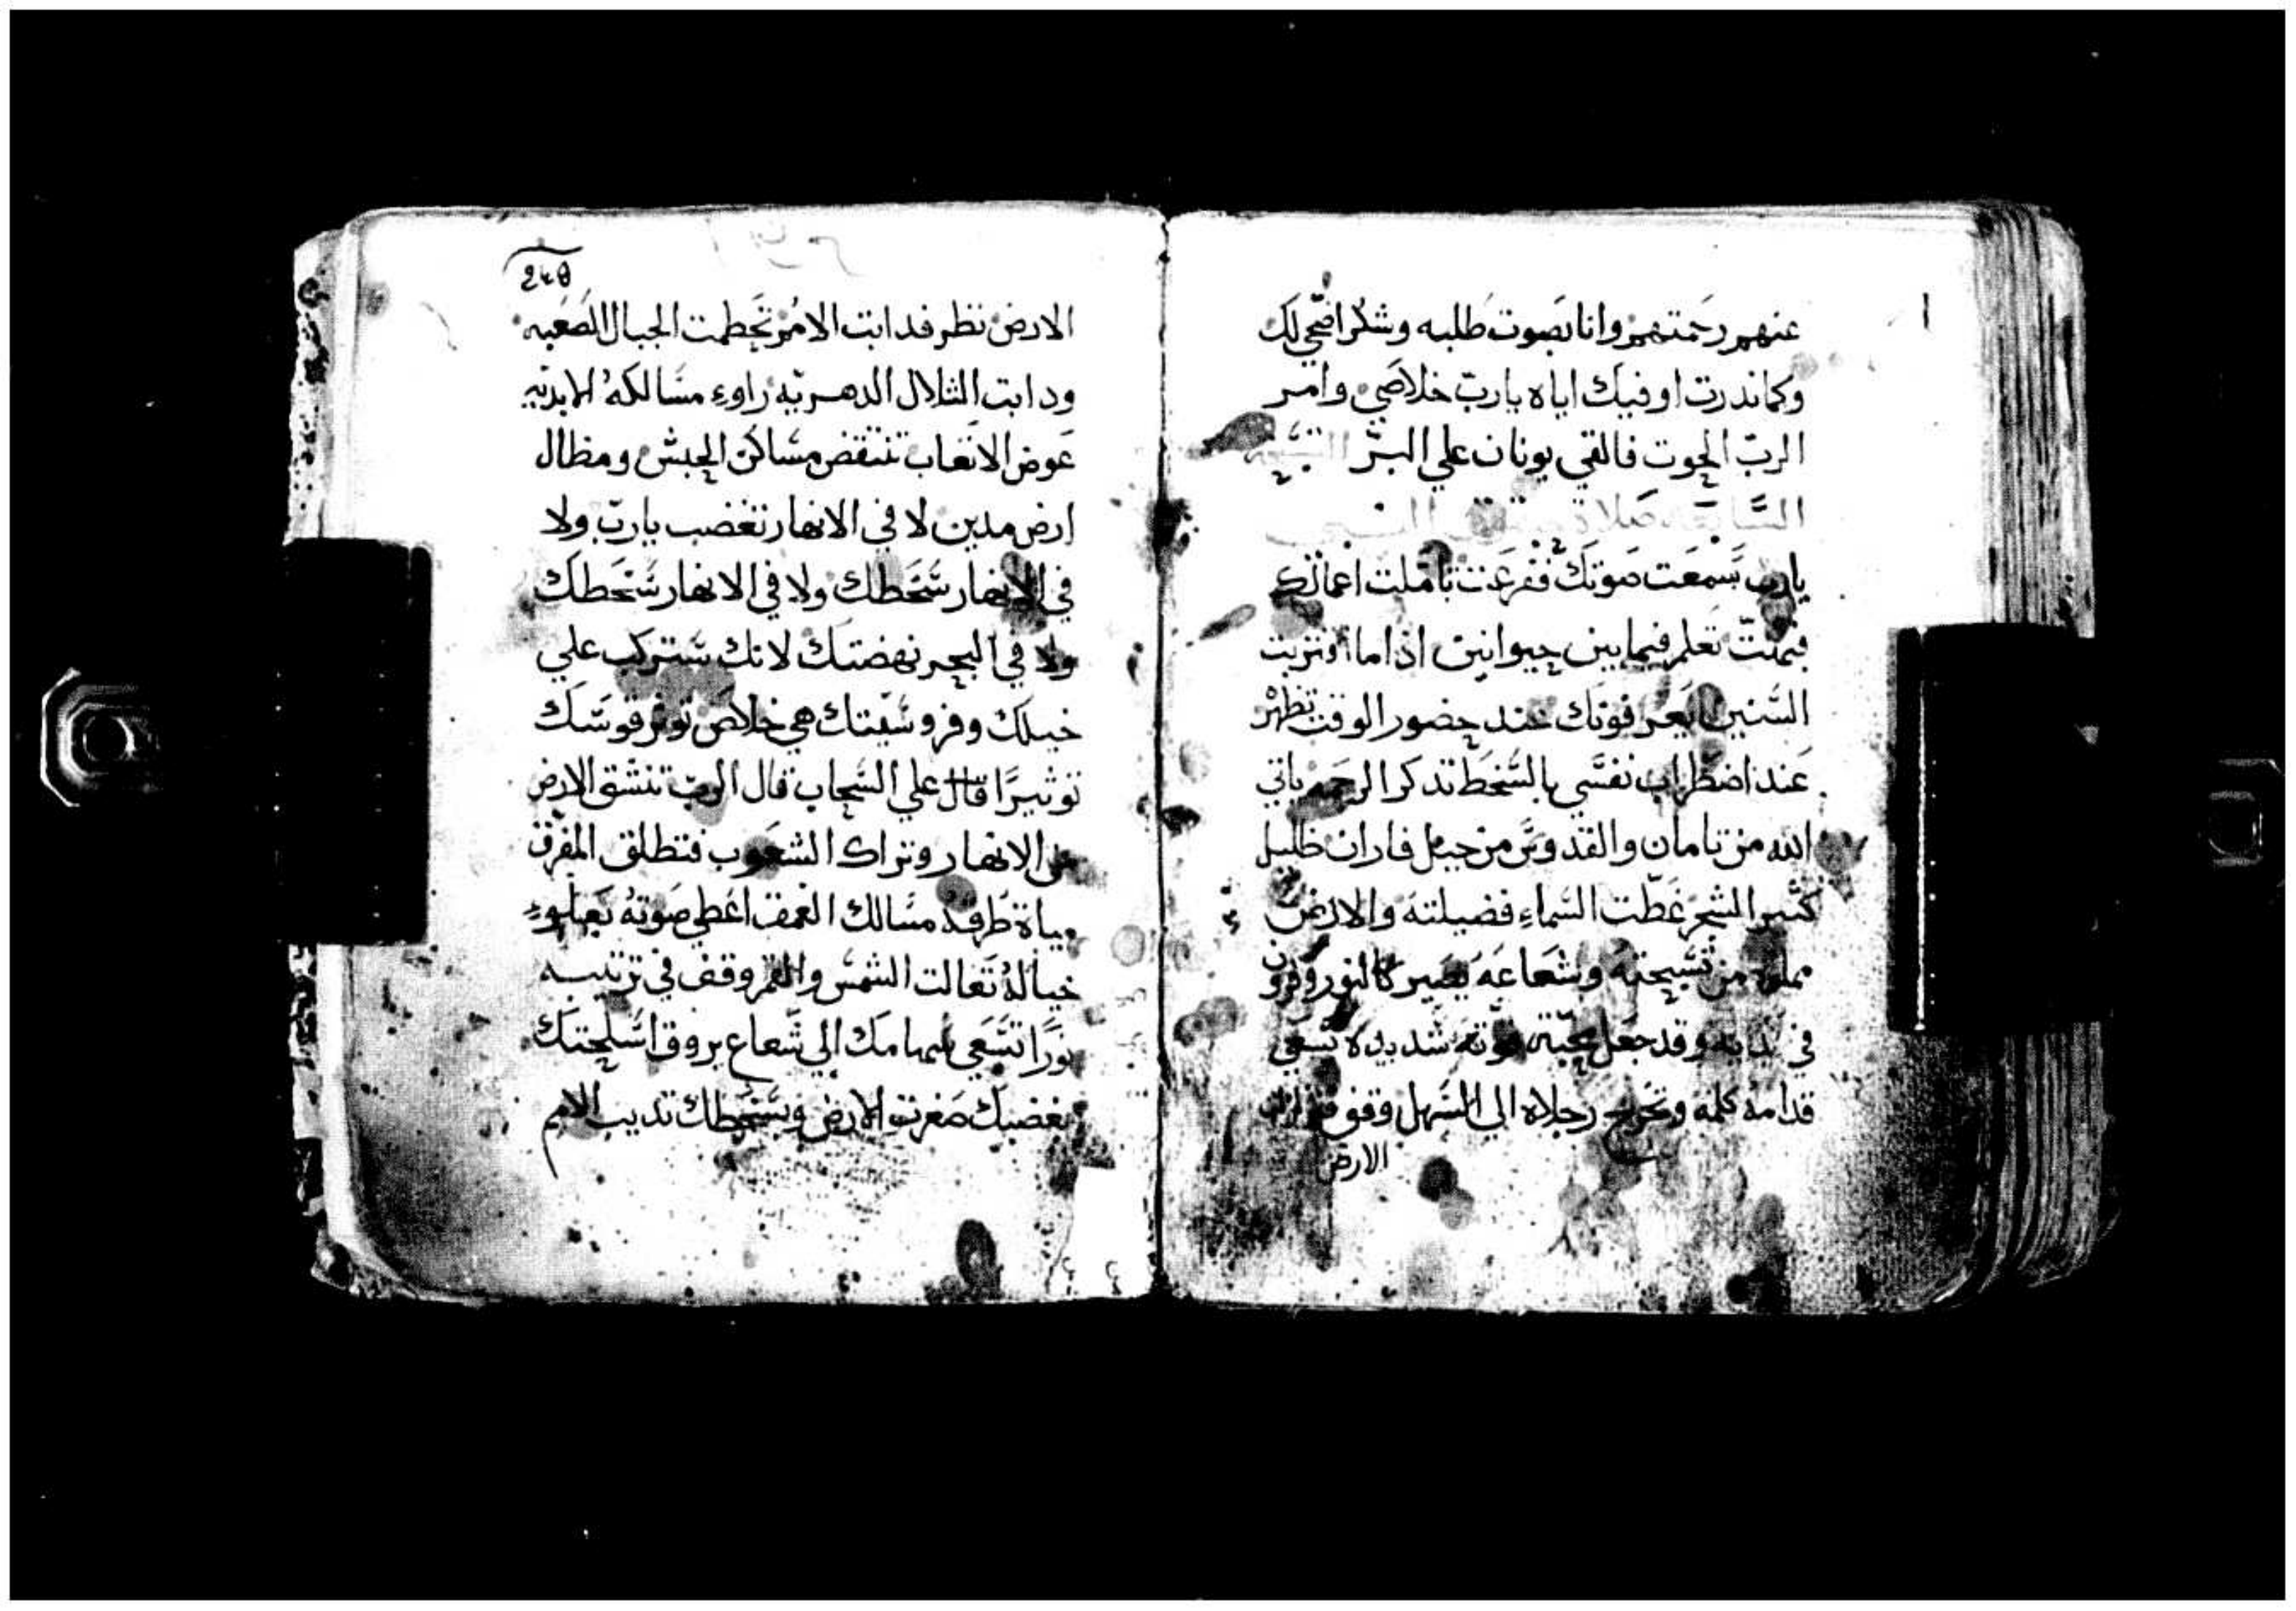 عنهم رحمتهم وانا بصوت طلبه وشكر اضحي لك
وكما ندرت اوفيك اياه يارب خلاصي وامر
الرب الحوت فالقي يونان علي البر التسبحه
السابعه صلاة
يارب سمعت صوتك ففرعت تاملت اعمالك
فبهتت تعلم فيما بين حيوانين اذا ما اقتربت
السنين يعرفونك عند حضور الوقت تظهر
عند اضطراب نفسي بالسخط تدكر الرحمه ياتي
الله من تامان والقدوس من جبل فاران ظليل
كثير الشجر غطت السماء فضيلته والارض
مملوه من تسبحته وشعاعه يصير كالنور وقرون
في يديه وقد جعل محبته قوته شديده تسعي
قدامه كلمه وتخرج رجلاه الي السهل وقف
الارض
248
الارض نظر فدابت الامم تحطمت الجبال الصعبه
ودابت التلال الدهريه راوء مسالكه الابديه
عوض الاتعاب تنتقض مساكن الحبش ومظال
ارض مدين لا في الانهار تغضب يارب ولا
في الانهار سخطك ولا في الانهار سخطك
ولا في البحر نهضتك لانك ستركب علي
خيلك وفروسيتك هي خلاص توتر قوسك
توتيرا قال علي السحاب قال الرب تنشق الارض
من الانهار وتراك الشعوب فتطلق المفرق
مياة طرفه مسالك العمق اعطي صوته بعلوء
خياله تعالت الشمس والقمر وقف في ترتيبه
نورا تسعي سهامك الي شعاع بروق اسلحتك
بغضبك صغرت الارض وبسخطك تديب الامم